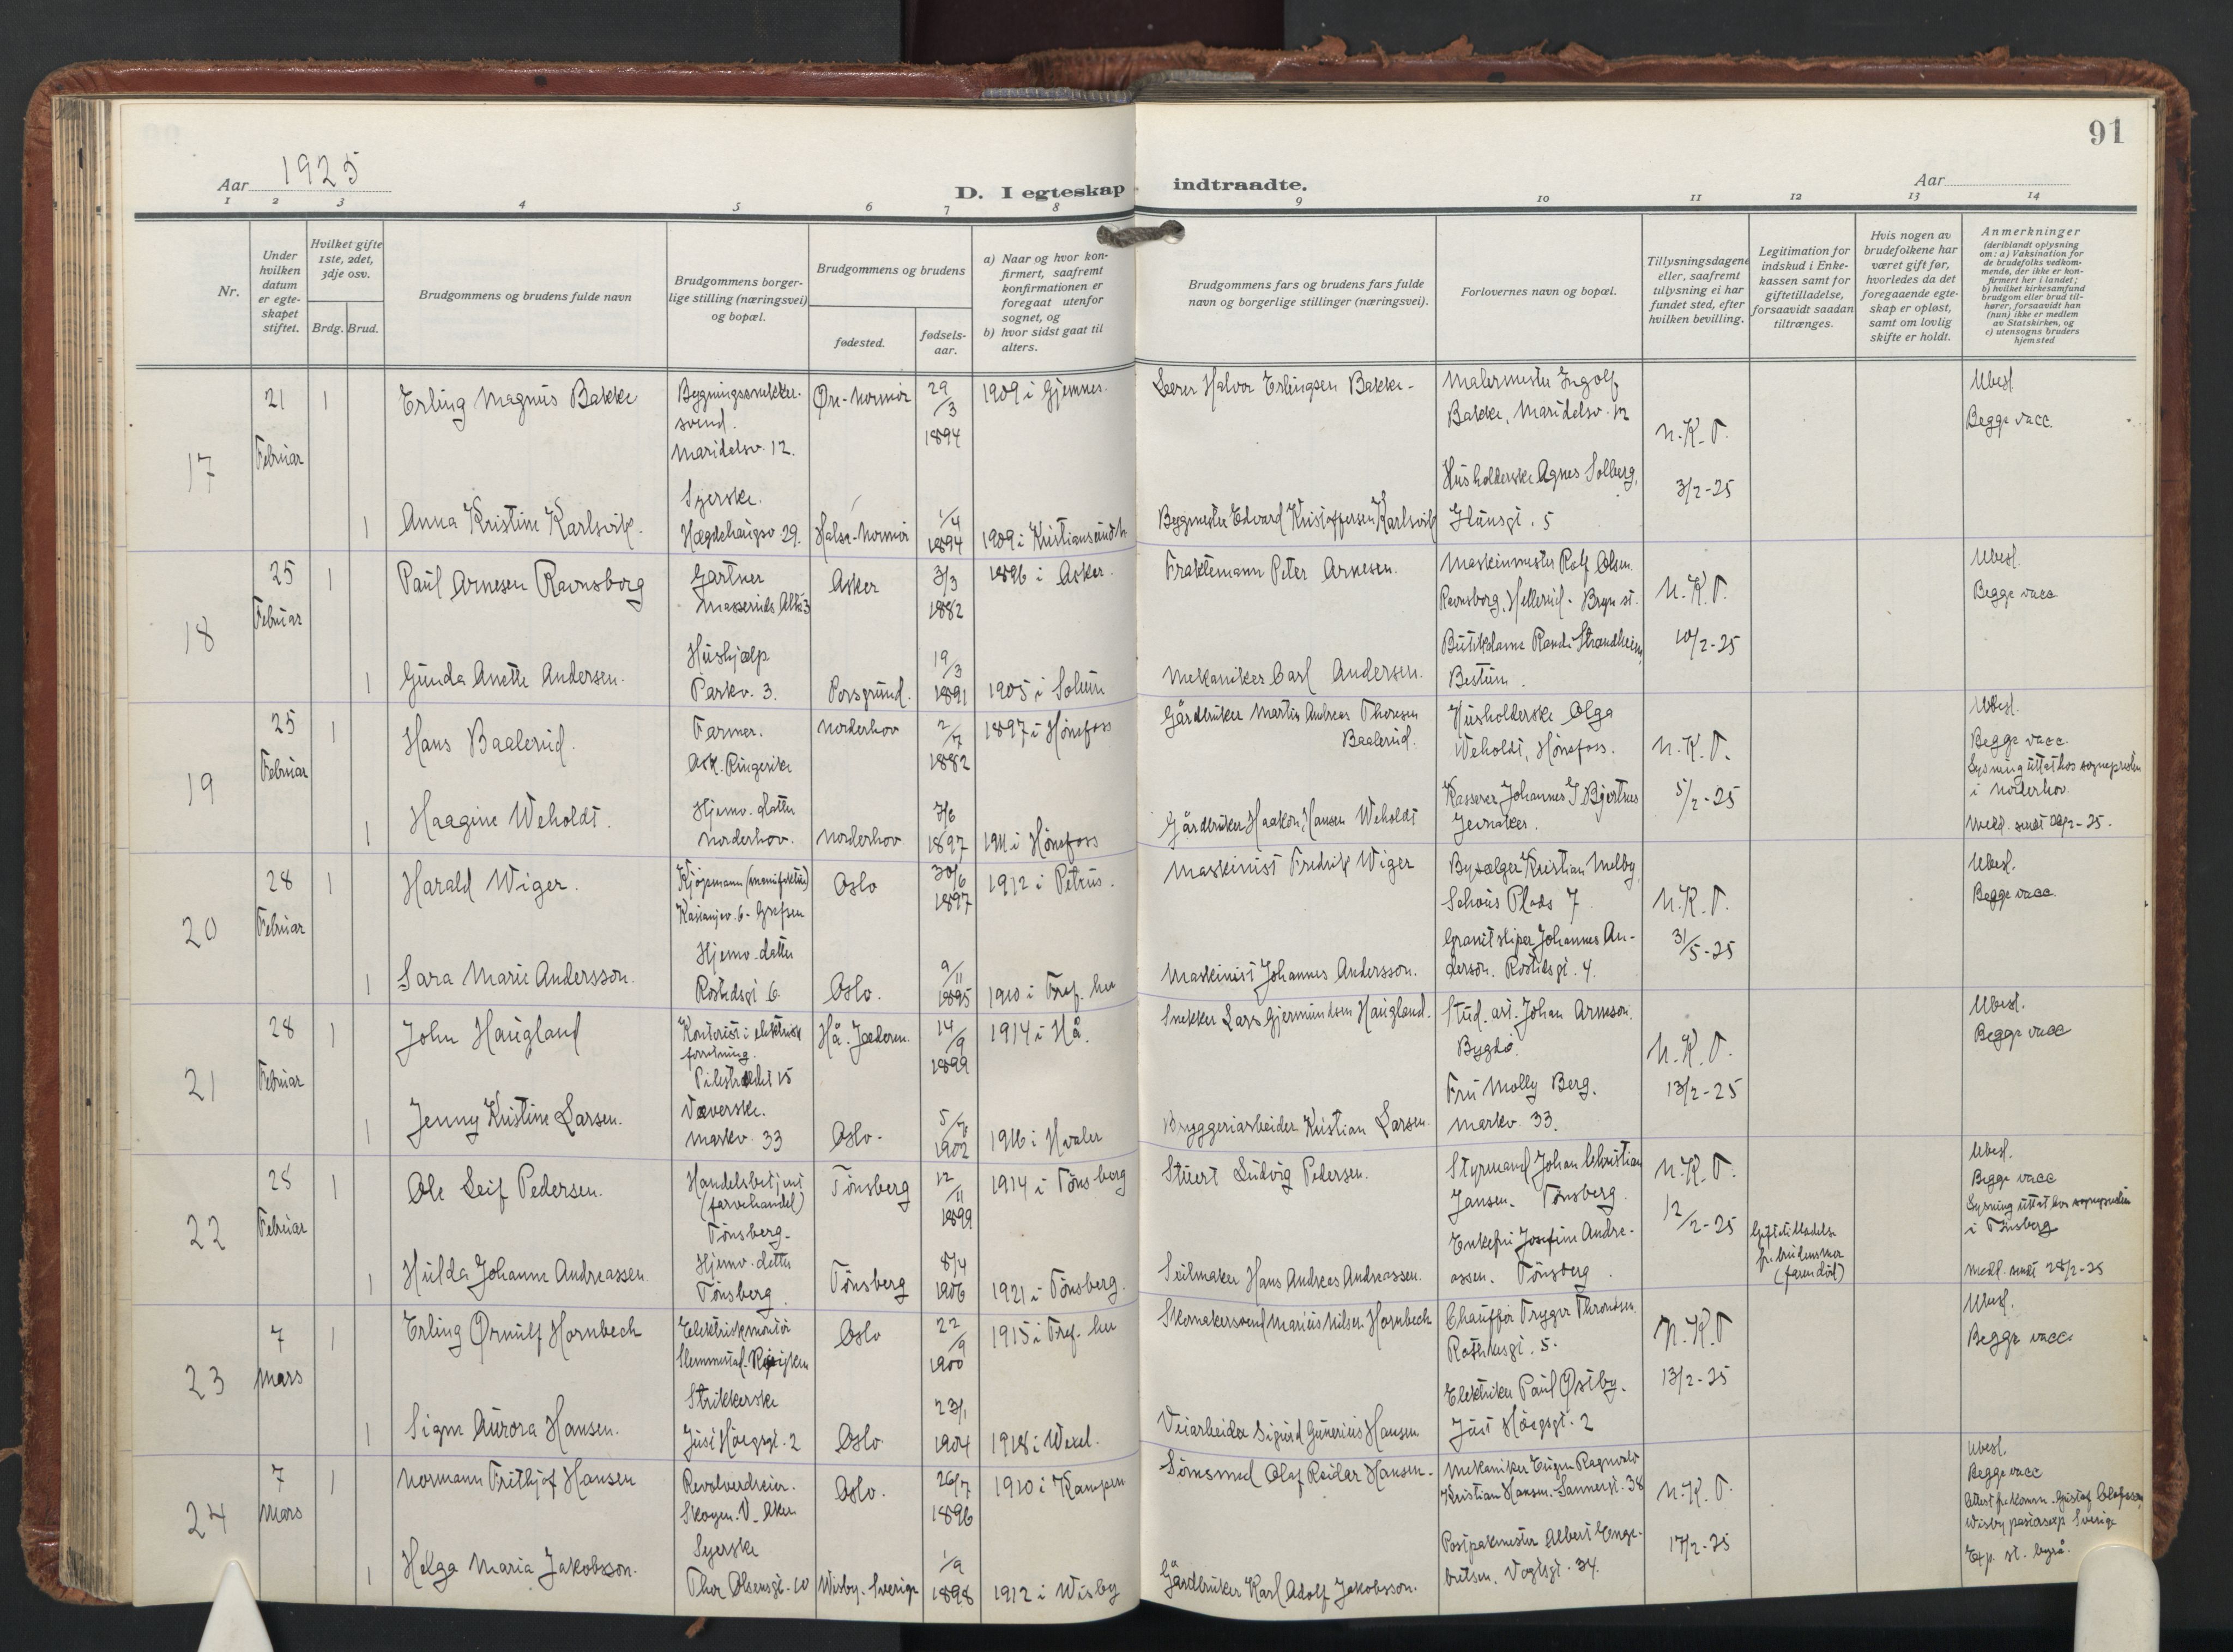 91
Aar 1925
D. I egteskap indtraadte.
Aar
1 2 3 4 5 6 7 8 9 10 11 12 13 14
Nr.
Under hvilken datum er egteskapet stiftet.
Hvilket gifte 1ste, 2det, 3dje osv.
Brdg. Brud.
Brudgommens og brudens fulde navn
Brudgommens borgerlige stilling (næringsvei) og bopæl.
Brudgommens og brudens
fødested.
fødselsaar.
a) Naar og hvor konfirmert, saafremt konfirmationen er foregaat utenfor sognet, og
b) hvor sidst gaat til alters.
Brudgommens fars og brudens fars fulde navn og borgerlige stillinger (næringsvei).
Forlovernes navn og bopæl.
Tillysningsdagene eller, saafremt tillysning ei har fundet sted, efter hvilken bevilling.
Legitimation for indskud i Enkekassen samt for giftetilladelse, forsaavidt saadan tiltrænges.
Hvis nogen av brudefolkene har været gift før, hvorledes da det foregaaende egteskap er opløst, samt om lovlig skifte er holdt.
Anmerkninger
(deriblandt oplysning om: a) Vaksination for de brudefolks vedkommende, der ikke er konfirmert her i landet; b) hvilket kirkesamfund brudgom eller brud tilhører, forsaavidt han (hun) ikke er medlem av Statskirken, og c) utensogns bruders hjemsted
17
21 Februar
1
Erling Magnus Bakke
Bygningssnekkersvend.
Maridalsv. 12.
29/3 1894
1909 i Gjemnes.
Lærer Halvor Erlingsen Bakke
Malermester Ingolf Bakke, Maridalsv. 12
N.K.T.
3/2-25
Ubesl.
Begge vacc.
1
Anna Kristine Karlsvik.
Syerske.
Hægdehaugsv. 29.
1/4 1894
1909 i Kristiansund N
Bygmester Edvard Kristoffersen Karlsvik
Husholderske Agnes Solberg,
18
25 Februar
1
Paul Arnesen Ravnsborg
Gartner
Asker
3/3 1882
1896 i Asker.
Fraktemann Peter Arnesen.
Maskinmester Rolf Olsen
Ravnsborg, Hellerud - Bryn st.
N.K.T.
10/2-25
Ubesl.
Begge vacc
1
Gunda Anette Andersen.
Hushjælp
Parkv. 3.
Porsgrund.
19/3 1891
1905 i Solum
Mekaniker Carl Andersen.
Butikdame Randi Strandheim,
Bestum.
19
25 Februar
1
Hans Baalerud.
Farmer.
Ask. Ringerike
Norderhov
2/7 1882
1897 i Hönefoss
Gårdbruker Martin Andreas Thoresen Baalerud.
Husholderske Olga Weholdt, Hönefoss.
N.K.T.
5/2-25
Ubesl.
Begge vacc.
Lysning uttat hos sognepresten i Norderhov.
1
Haagine Weholdt.
Hjemv. datter
Norderhov.
Norderhov
7/6 1897
1911 i Hönefoss
Gårdbruker Haakon Hansen Weholdt
Kasserer Johannes J Bjertnes
Jevnaker.
20
28 Februar
1
Harald Wiger.
Kjöpmann (manufaktur)
Kastanjev. 6 - Grefsen
Oslo
30/6 1897
1912 i Petrus.
Maskinist Fredrik Wiger
Bysælger Kristian Melby
Schous Plads 7
N.K.T.
31/5-25
Ubesl.
Begge vacc.
1
Sara Marie Andersson.
Hjemv. datter
Rostedsgt 6.
Oslo.
9/11 1895
1910 i Tref. her
Maskinist Johannes Andersson.
Granitsliper Johannes Anderson. Rostedsgt. 4.
21
28 Februar
1
John Haugland
Kontorist i elektrisk forretning.
Pilestrædet 15
Hå. Jæderen.
14/9 1899
1914 i Hå.
Snekker Lars Gjermundsen Haugland.
Stud. art. Johan Arneson.
Bygdö.
N.K.T.
13/2-25
Ubesl.
Begge vacc
1
Jenny Kristine Larsen.
Væverske.
Markv. 33
Oslo.
1902
1916 i Hvaler
Bryggeriarbeider Kristian Larsen.
Fru Molly Berg.
Markv. 33.
22
28 Februar
1
Ole Leif Pedersen.
Handelsbetjent (farvehandel)
Tönsberg.
Tönsberg
12/11 1899
1914 i Tönsberg
Stuert Ludvig Pedersen.
Styrmand Johan Christian Jansen. Tönsberg.
N.K.T.
12/2-25
Giftetilladelse fr. brudens mor (faren död)
Ubesl.
Begge vacc
Lysning uttat hos sognepresten i Tönsberg
Medd. sendt 28/2-25
1
Hulda Johanne Andreassen.
Hjemv. datter
Tönsberg.
Tönsberg
8/4 1906
1921 i Tönsberg.
Seilmaker Hans Andreas Andreassen.
Enkefru Josefine Andreassen. Tönsberg.
23
7 Mars
1
Erling Ørnulf Hornbech
Elektriskmontör
Oslo
22/9 1900
1915 i Tref. her
Skomakersvend Marius Nilsen Hornbech
Chauffør Trygve Throndsen.
N.K.T
13/2-25
Ubesl.
Begge vacc
1
Signe Aurora Hansen.
Strikkerske
Just Höegsgt. 2
Oslo
23/1 1904
1918 i Wexel.
Veiarbeider Sigurd Gunerius Hansen
Elektriker Paul Østby.
Just Höegsgt. 2
24
7 Mars
1
Normann Frithjof Hansen
Revolverdreier.
Skøyen. V. Aker
Oslo.
26/7 1896
1910 i Kampen
Olaf Reidar Hansen.
Mekaniker Eugen Ragnvald Kristian Hansen. Sannergt. 38
N.K.T.
17/2-25
Ubesl.
Begge vacc
1
Helga Maria Jakobsson.
Syerske
Thor Olsensgt. 10
Wisby. Sverige
1/9 1898
1912 i Wisby
Gårdbruker Karl Adolf Jakobsson.
Postpakmester Albert Engebretsen. Vogtsgt. 34.